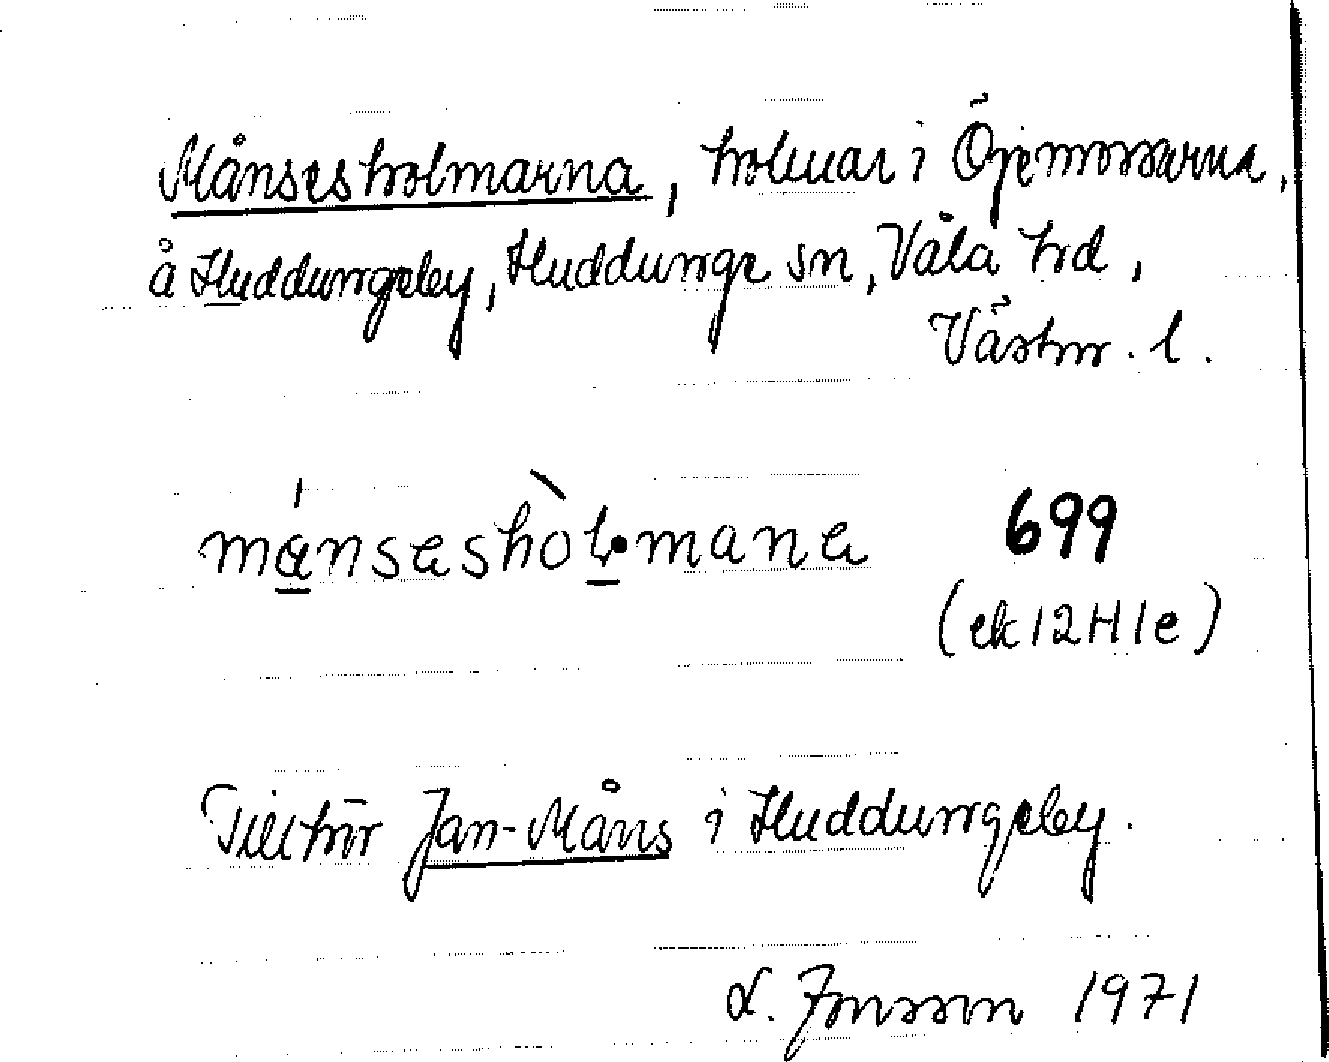 Månsesholmarna, holmar i Öjemossarna,
å Huddungeby, Huddunge sn, Våla hd,
Västm. l.
månsesholmana 699
(ek 12H1e)
Tillhör Jan-Måns i Huddungeby.
L. Jonsson 1971